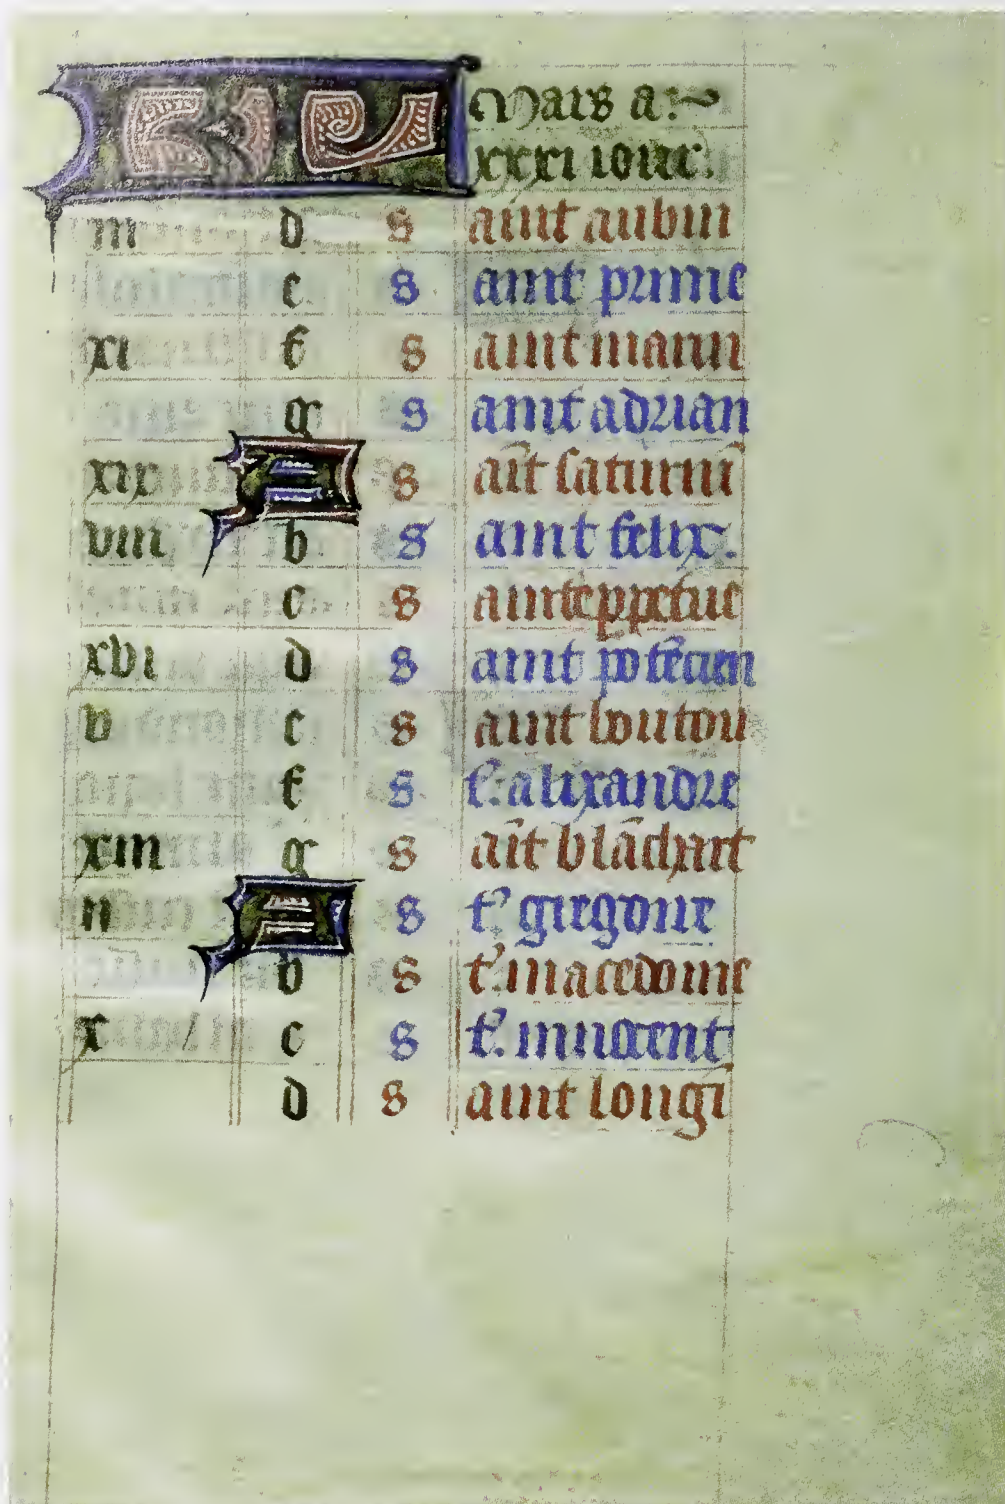 KL Mars a:
xxxi iour.
iii d s aint aubin
e s aint prime
xi f s aint marin
g s aint adrian
xix A s aīt saturnī
viii b s aint felix.
c s ainte ppetue
xvi d s aint potēcien
v e s aint loutou
f s t'. alixandre
xiii g s aīt blāchart
ii A s t' gregoire
b s t' macedoine
x c s t'. innocent
d s aint longī